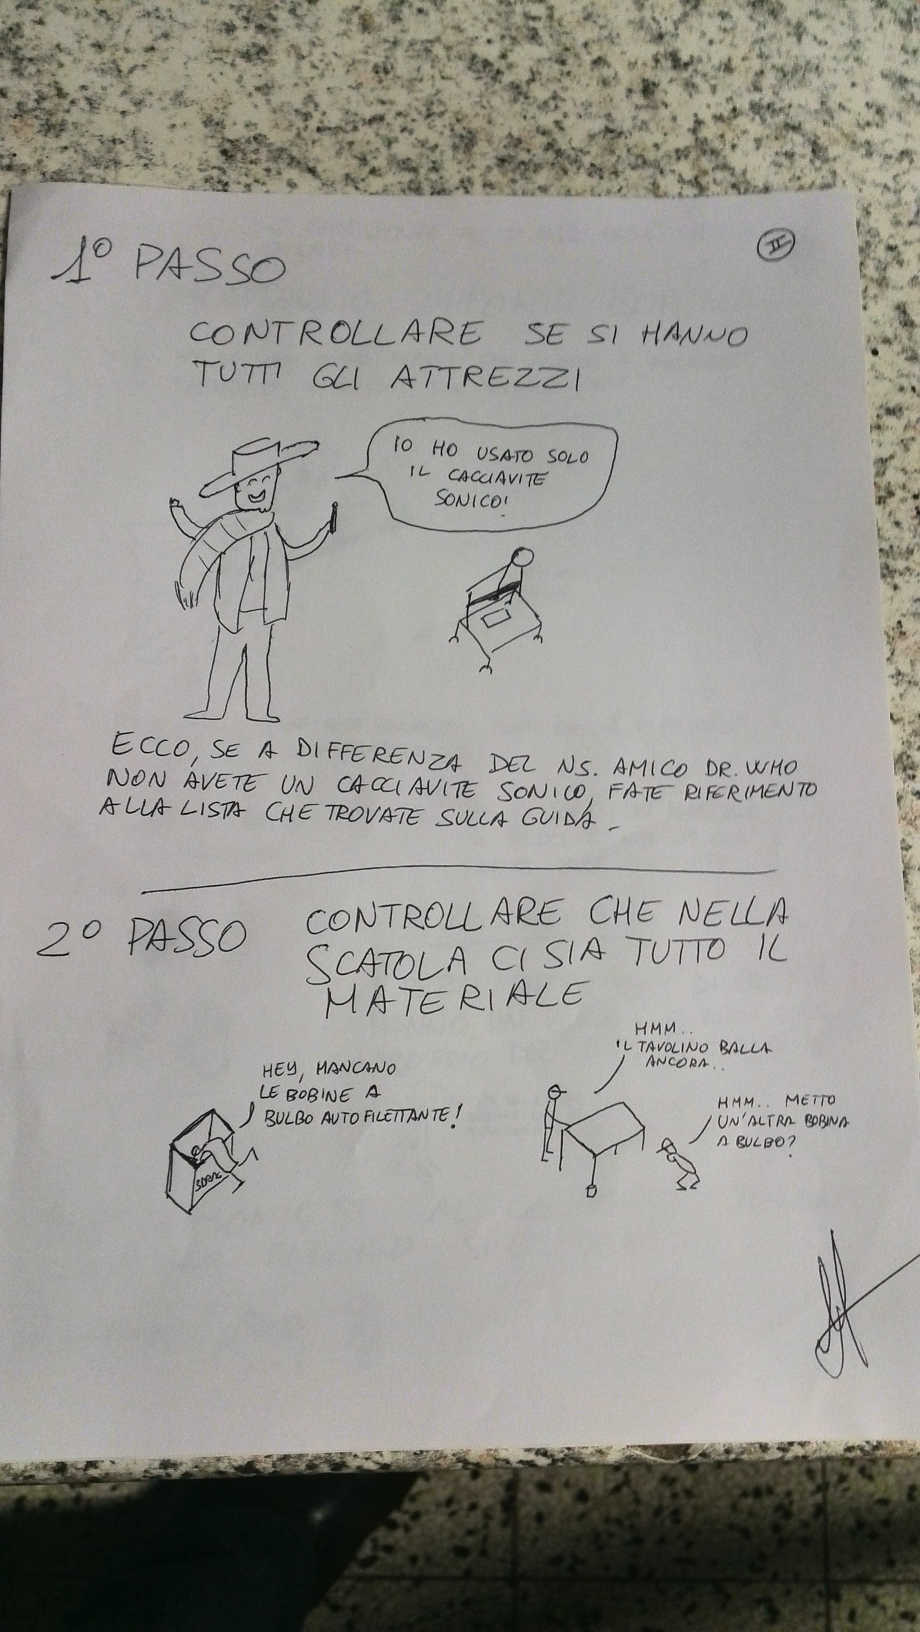 II
1° PASSO
CONTROLLARE SE SI HANNO
TUTTI GLI ATTREZZI
IO HO USATO SOLO
IL CACCIAVITE
SONICO!
ECCO, SE A DIFFERENZA DEL NS. AMICO DR. WHO
NON AVETE UN CACCIAVITE SONICO, FATE RIFERIMENTO
ALLA LISTA CHE TROVATE SULLA GUIDA.
2° PASSO
CONTROLLARE CHE NELLA
SCATOLA CI SIA TUTTO IL
MATERIALE
HEY, MANCANO
LE BOBINE A
BULBO AUTOFILETTANTE!
HMM..
IL TAVOLINO BALLA
ANCORA..
HMM.. METTO
UN'ALTRA BOBINA
A BULBO?